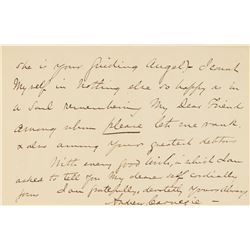 she is your guiding Angel & I
Myself in Nothing else so happy as in
a Soul remembering My Dear Friend
among whom please let me rank
& also among your greatest debtors
With every good wish, in which I am
asked to tell you My dear self cordially
joins I am gratefully, devotedly yours always
Andrew Carnegie